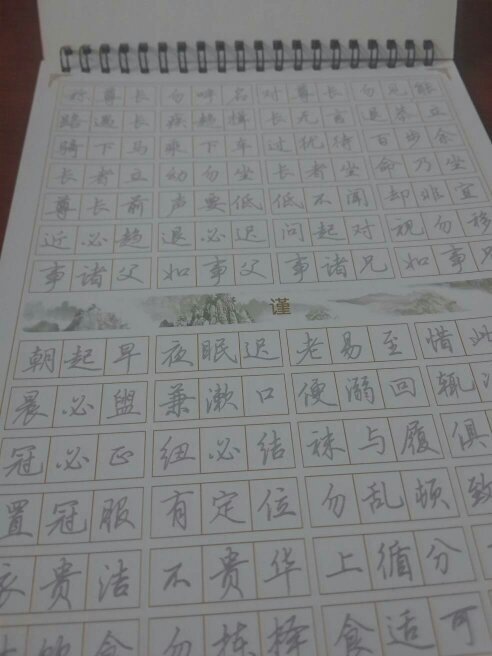 称尊长 勿呼名 对尊长 勿见能
路遇长 疾趋揖 长无言 退恭立
骑下马 乘下车 过犹待 百步余
长者立 幼勿坐 长者坐 命乃坐
尊长前 声要低 低不闻 却非宜
近必趋 退必迟 问起对 视勿移
事诸父 如事父 事诸兄 如事兄
谨
朝起早 夜眠迟 老易至 惜此
晨必盥 兼漱口 便溺回 辄
冠必正 纽必结 袜与履 俱
置冠服 有定位 勿乱顿 致
衣贵洁 不贵华 上循分
饮食 勿拣择 食适可